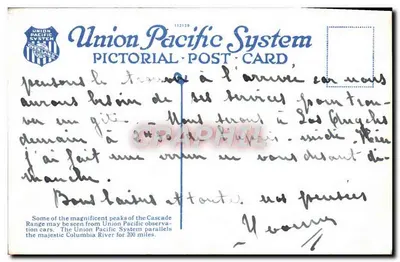 UNION
PACIFIC
SYSTEM
Union Pacific System
PICTORIAL · POST CARD
pensons le trouver à l'arrivée car nous
aurons besoin de ses services pour trou-
ver un gîte. Nous serons à Los Angeles
demain à de l'après-midi. Hier
j'ai fait une erreur en vous disant di-
manche.
Bons baisers et toutes nos pensées
Yvonne
Some of the magnificent peaks of the Cascade
Range may be seen from Union Pacific observa-
tion cars. The Union Pacific System parallels
the majestic Columbia River for 200 miles.